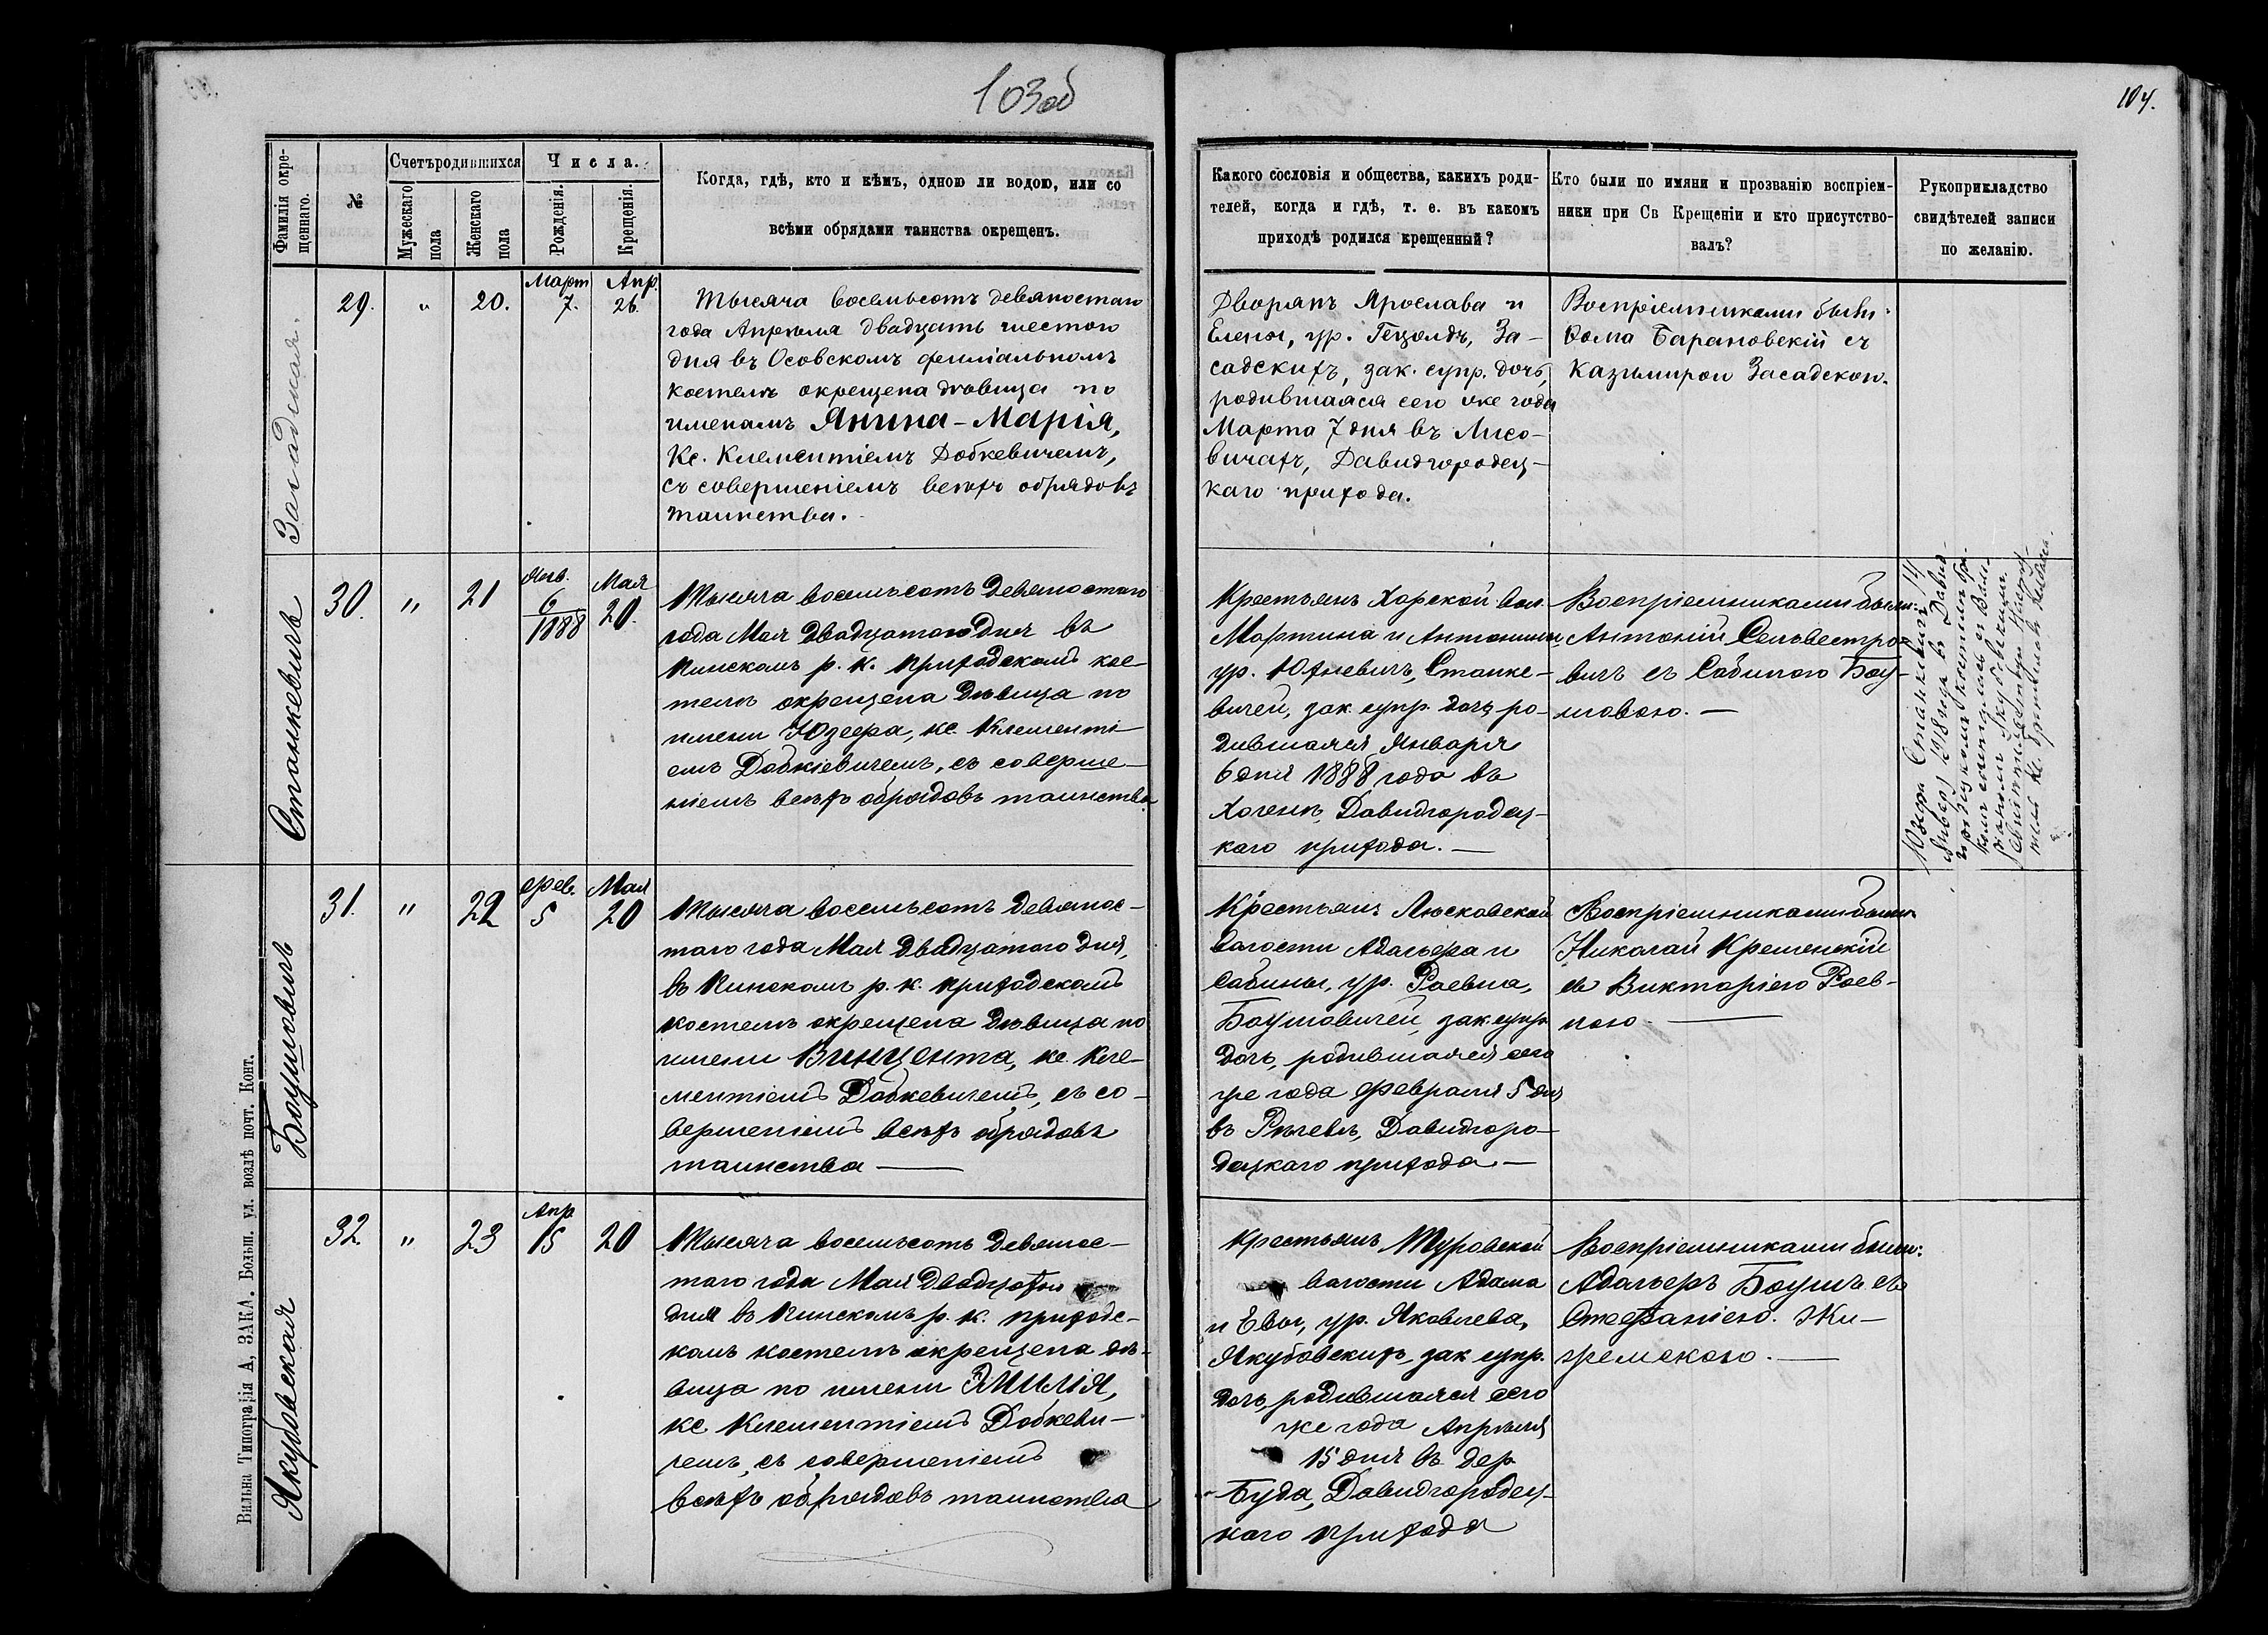 103об
104.
Фамилія окре-
щеннаго.
№
Счетъ родившихся
Мужескаго
пола
Женскаго
пола
Числа.
Рожденія.
Крещенія.
Когда, гдѣ, кто и кѣмъ, одною ли водою, или со
всѣми обрядами таинства окрещенъ.
Какого сословія и общества, какихъ роди-
телей, когда и гдѣ, т. е. въ какомъ
приходѣ родился крещенный?
Кто были по имяни и прозванію воспріем-
ники при Св Крещеніи и кто присутство-
валъ?
Рукоприкладство
свидѣтелей записи
по желанію.
Засадская.
29.
"
20.
Март
7.
Апр.
26.
Тысяча восемьсотъ девяностаго
года Апрѣля двадцать шестого
дня въ Осовскомъ филіальномъ
костелѣ окрещена дѣвица по
именамъ Янина-Марія,
Кс. Клементіемъ Добкевичемъ,
съ совершеніемъ всѣхъ обрядовъ
таинства.
Дворянъ Ярослава и
Елены, ур. Гецолдъ, За-
садскихъ, зак. супр. дочь,
родившаяся сего же года
Марта 7 дня въ Лисо-
вичахъ, Давидгородец-
каго прихода.
Воспріемниками были:
Фома Барановскій съ
Казимирою Засадскою.
Станкевичъ
30.
"
21
Янв.
6
1888
Мая
20.
Тысяча восемьсотъ девяностаго
года Мая двадцатаго дня въ
Пинскомъ р. к. приходскомъ кос-
телѣ окрещена дѣвица по
имени Юзефа, кс. Клементі-
емъ Добкіевичемъ, съ соверше-
ніемъ всѣхъ обрядовъ таинства
Крестьянъ Хорской вол.
Мартина и Антонины,
ур. Юхневичъ, Станке-
вичей, зак. супр. дочь, ро-
дившаяся Января
6 дня 1888 года въ
Хоченѣ, Давидгородец-
каго прихода.
Воспріемниками были:
Антоній Сельвестро-
вичъ съ Сабиною Боу-
шовою.
Юзефа Станкевичъ 14
1918 года въ Давид-
Боушовичъ
31.
"
22
Фев.
5
Мая
20
Тысяча восемьсотъ девянос-
таго года Мая двадцатаго дня,
въ Пинскомъ р. к. приходскомъ
костелѣ окрещена дѣвица по
имени Винцента, кс. Кле-
ментіемъ Добкевичемъ, съ со-
вершеніемъ всѣхъ обрядовъ
таинства
Крестьянъ Лясковской
волости Адольфа и
Сабины, ур. Раевна,
Боушовичей, зак. супр.
дочь, родившаяся сего
же года февраля 5 дня
въ Рычевѣ, Давидгоро-
децкаго прихода.
Воспріемниками были
Николай Кременскій
съ Викторіею Раев-
ною
Якубовская
32.
"
23
Апр
15
20
Тысяча восемьсотъ девянос-
таго года Мая двадцатого
дня въ Пинскомъ р. к. приходс-
комъ костелѣ окрещена дѣ-
вица по имени Эмилія,
кс Клементіемъ Добкеви-
чемъ, съ совершеніемъ
всѣхъ обрядовъ таинства
Крестьянъ Туровской
волости Адама
и Евы, ур. Яковлева,
Якубовскихъ, зак супр.
дочь, родившаяся сего
же года Апрѣля
15 дня въ дер.
Буда, Давидгородец-
каго прихода
Воспріемниками были:
Адольфъ Боушъ съ
Стефаніею Жи-
жемскою.
Вильна Типографія А, ЗАКА. Больш. ул. возлѣ почт. Конт.